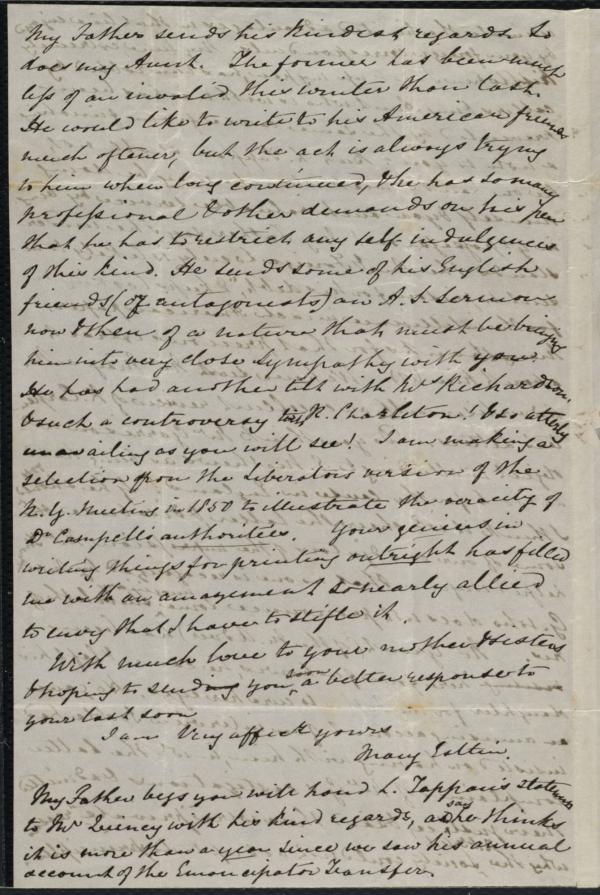 My Father sends his kindest regards so
does my Aunt. The former has been much
less of an invalid this winter than last.
He would like to write to his American friends
much oftener, but the act is always trying
to him when long continued, & he has so many
professional & other demands on his pen
that he has to restrict any self-indulgences
of this kind. He sends some of his English
friends (or antagonists) an A. S. Sermon
now & then of a nature that must be bringing
him into very close sympathy with you.
He has had another tilt with Mrs Richardson,
& such a controversy with R. Charleton! & so utterly
unavailing as you will see! I am making a
selection from the Liberators version of the
N. Y. Meeting in 1850 to illustrate the veracity of
Dr Campell's authorities. Your genius in
writing things for printing outright has filled
me with an amazement so nearly allied
to envy that I have to stifle it.
With much love to your mother & sisters
& hoping to send you soon a better response to
your last soon
I am Very affect yours
Mary Estlin.
My Father begs you will hand L. Tappan's statement
to Mr Quincy with his kind regards, and say he thinks
it is more than a year since we saw his annual
account of the Emancipator Transfer.